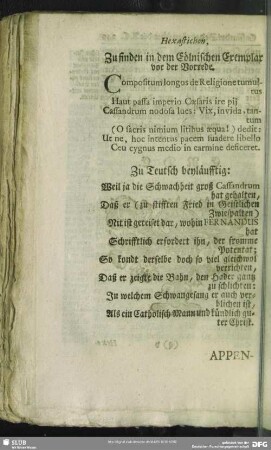 Hexastichon,
Zu finden in dem Cölnischen Exemplar
vor der Vorrede.
Compositum longos de Religione tumul-
tus
Haut passa imperio Cæsaris ire pij
Cassandrum nodosa lues; Vix, invida, tan-
tum
(O sacris nimium litibus æqua!) dedit:
Ut ne, hoc intentos pacem suadere libello
Ceu cygnus medio in carmine deficeret.
Zu Teutsch beyläufftig:
Weil ja die Schwachheit groß Cassandrum
hat gehalten,
Daß er (zu stifften Fried in Geistlichen
Zwiespalten)
Nit ist gereiset dar, wohin FERNANDUS
hat
Schrifftlich erfordert ihn, der fromme
Potentat;
So kondt derselbe doch so viel gleichwol
verrichten,
Daß er zeigte die Bahn, den Hader gantz
zu schlichten:
In welchem Schwangesang er auch ver-
blichen ist,
Als ein Catholisch Mann und kündlich gu-
ter Christ.
APPEN-
SLUB